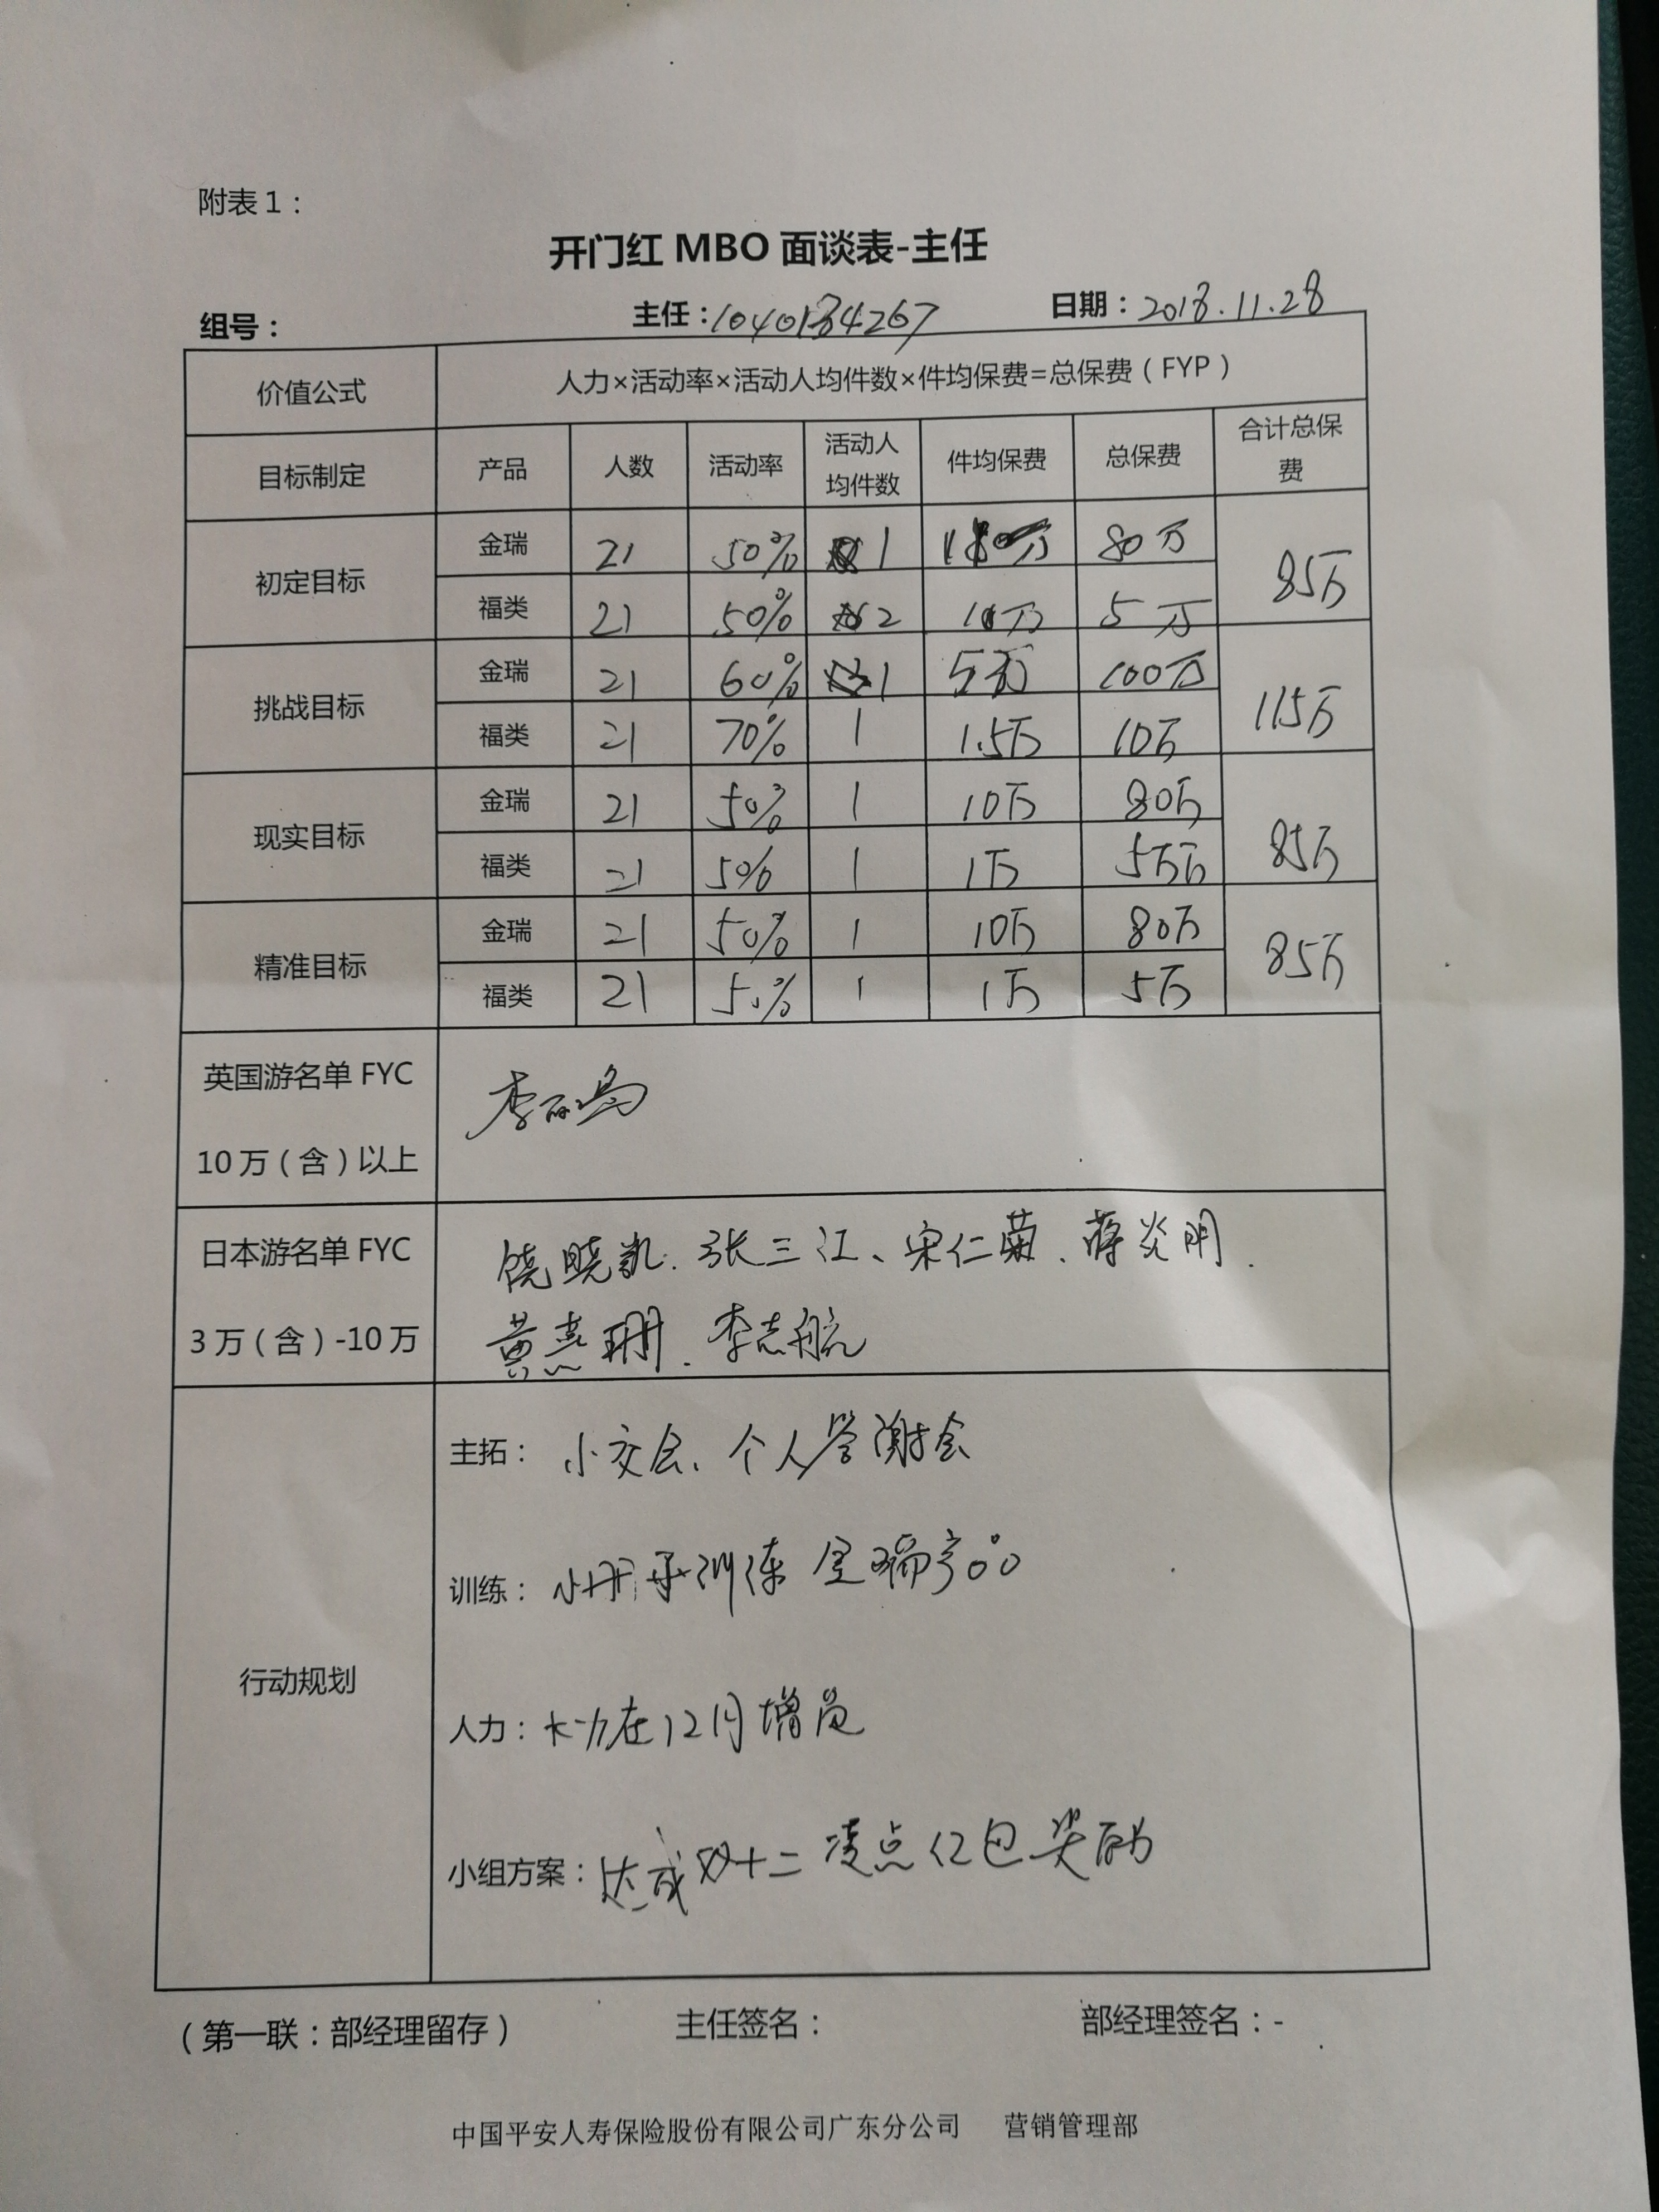 附表1：
开门红 MBO 面谈表-主任
组号： 主任： 日期：2018.11.28
价值公式 人力×活动率×活动人均件数×件均保费=总保费（FYP）
目标制定 产品 人数 活动率 活动人均件数 件均保费 总保费 合计总保费
初定目标 金瑞 21 50% 1 80万 85万
福类 21 50% 2 5万
挑战目标 金瑞 21 60% 1 5万 100万 115万
福类 21 70% 1 1.5万 10万
现实目标 金瑞 21 50% 1 10万 80万 85万
福类 21 50% 1 1万 5万
精准目标 金瑞 21 50% 1 10万 80万 85万
福类 21 50% 1 1万 5万
英国游名单 FYC
10万（含）以上
日本游名单 FYC 饶晓凯、张三江、宋仁菊、蒋炎明、
3万（含）-10万 黄燕珊、李志航
行动规划
主拓： 小交会、个人答谢会
训练： 训练 金瑞
人力： 大力在12月增员
小组方案： 达成双十二 凌点红包奖励
（第一联：部经理留存） 主任签名： 部经理签名：-
中国平安人寿保险股份有限公司广东分公司 营销管理部